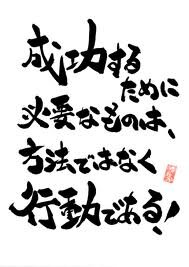 成功する
ために
必要なものは、
方法ではなく
行動である！